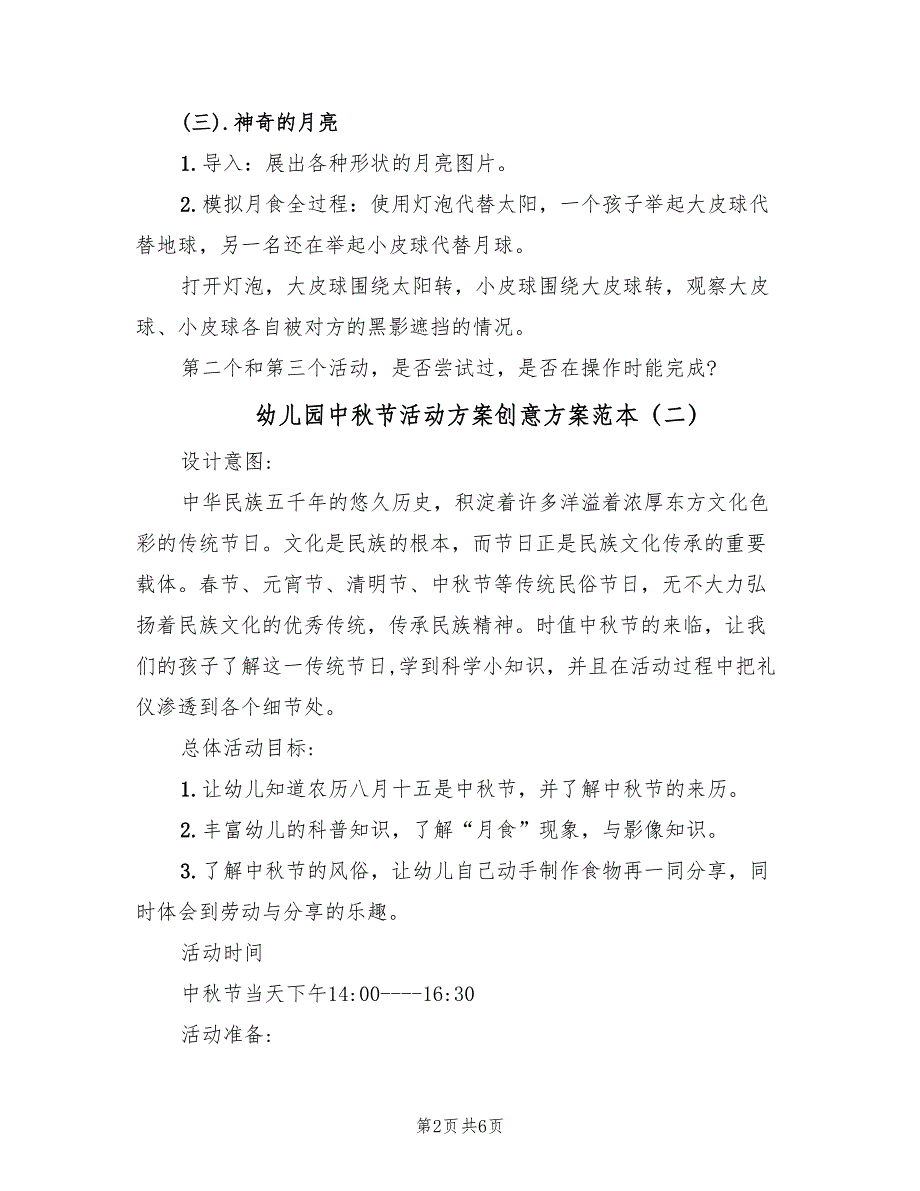 (三).神奇的月亮
1.导入：展出各种形状的月亮图片。
2.模拟月食全过程：使用灯泡代替太阳，一个孩子举起大皮球代
替地球，另一名还在举起小皮球代替月球。
打开灯泡，大皮球围绕太阳转，小皮球围绕大皮球转，观察大皮
球、小皮球各自被对方的黑影遮挡的情况。
第二个和第三个活动，是否尝试过，是否在操作时能完成?
幼儿园中秋节活动方案创意方案范本（二）
设计意图:
中华民族五千年的悠久历史，积淀着许多洋溢着浓厚东方文化色
彩的传统节日。文化是民族的根本，而节日正是民族文化传承的重要
载体。春节、元宵节、清明节、中秋节等传统民俗节日，无不大力弘
扬着民族文化的优秀传统，传承民族精神。时值中秋节的来临，让我
们的孩子了解这一传统节日,学到科学小知识，并且在活动过程中把礼
仪渗透到各个细节处。
总体活动目标:
1.让幼儿知道农历八月十五是中秋节，并了解中秋节的来历。
2.丰富幼儿的科普知识，了解“月食”现象，与影像知识。
3.了解中秋节的风俗，让幼儿自己动手制作食物再一同分享，同
时体会到劳动与分享的乐趣。
活动时间
中秋节当天下午14:00----16:30
活动准备:
第2页共6页